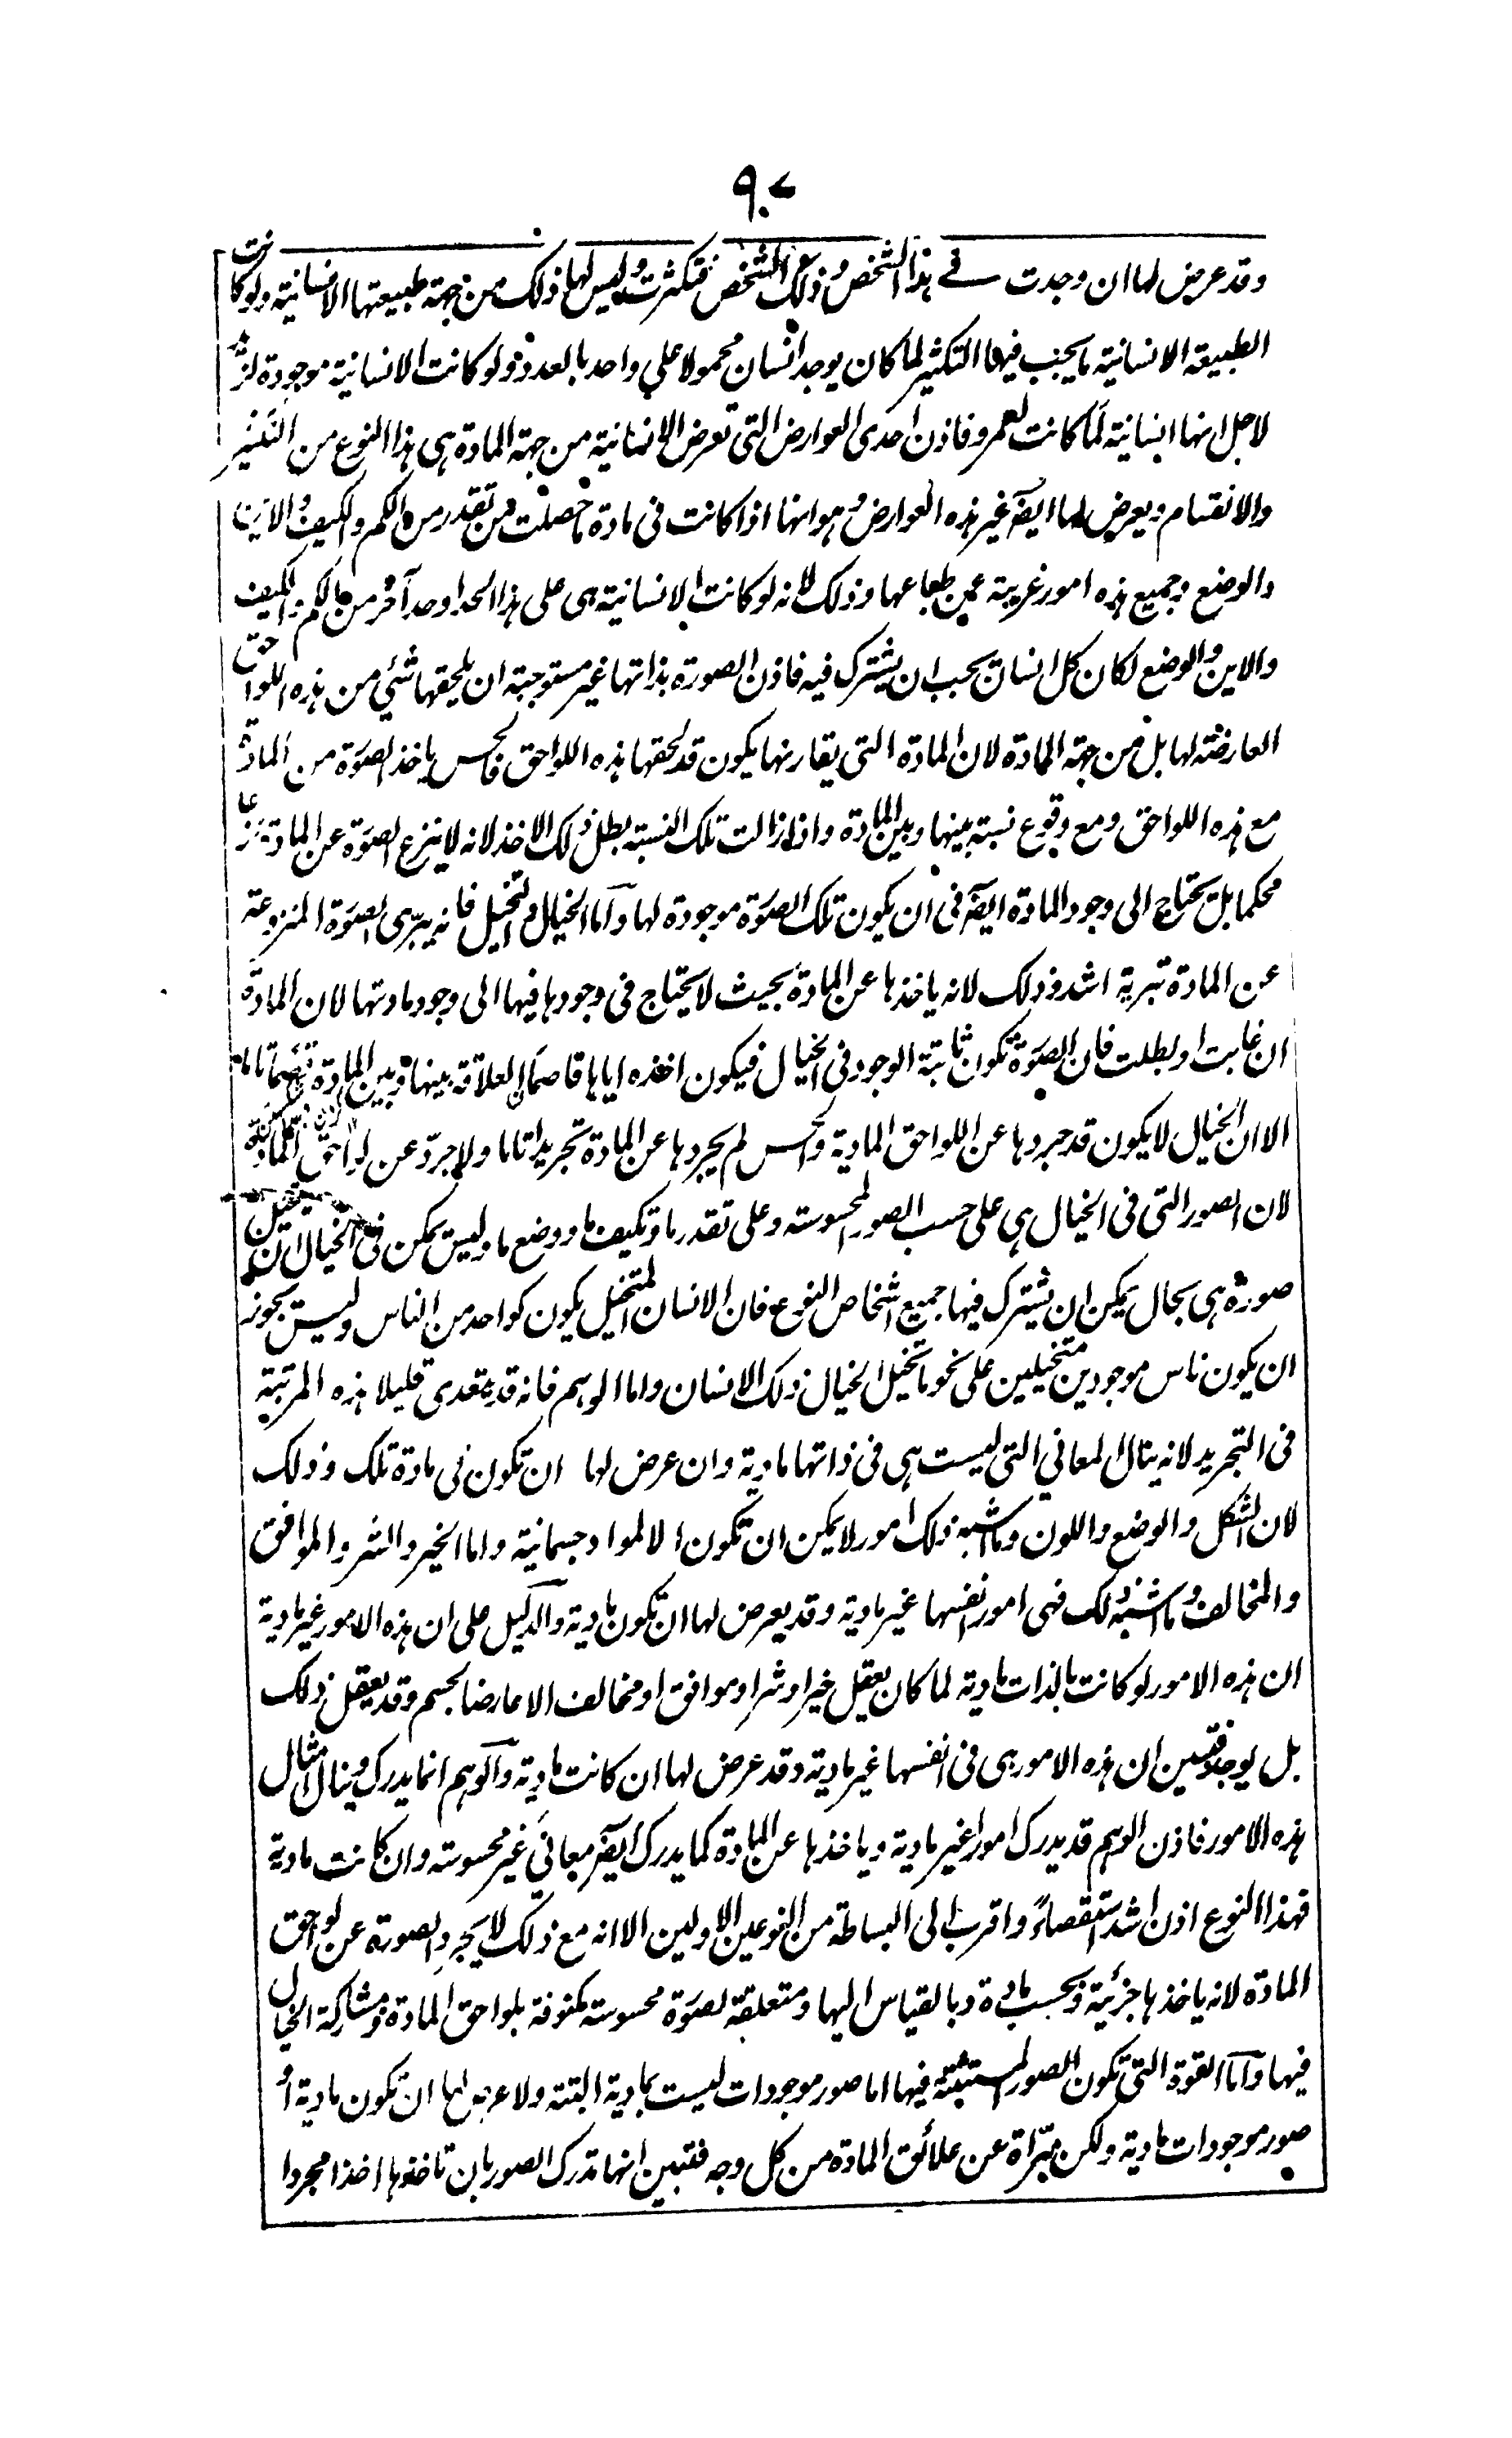 ٩٠٧
وقد عرض لها ان وجدت في هذا الشخص وذلك الشخص فتكثرت وليس لها ذلك من جهة طبيعتها الانسانية ولو كانت
الطبيعة الانسانية ما يجب فيها التكثير لما كان يوجد انسان محمولا على واحد بالعدد ولو كانت الانسانية موجودة لزيد
لاجل انها انسانية لما كانت لعمرو فاذن احدى العوارض التى تعرض الانسانية من جهة المادة هى هذا النوع من التكثير
والانقسام ويعرض لها ايضا غير هذه العوارض وهو انها اذا كانت فى مادة ما حصلت من تقدر من الكم والكيف والاين
والوضع وجميع هذه امور غريبة عن طباعها وذلك لانه لو كانت الانسانية هى على هذا الحد او حد آخر من الكم والكيف
والاين والوضع لكان كل انسان يجب ان يشترك فيه فاذن الصورة بذاتها غير مستوجبة ان يلحقها شئ من هذه اللواحق
العارضة لها بل من جهة المادة لان المادة التى يقارنها يكون قد لحقها هذه اللواحق فالحس ياخذ الصورة من المادة
مع هذه اللواحق ومع وقوع نسبة بينها وبين المادة واذا زالت تلك النسبة بطل ذلك الاخذ لانه لا ينزع الصورة عن المادة نزعا
محكما بل يحتاج الى وجود المادة ايضا فى ان يكون تلك الصورة موجودة لها واما الخيال والتخيل فانه يبرى الصورة المنزوعة
عن المادة تبرية اشد وذلك لانه ياخذها عن المادة بحيث لا يحتاج فى وجودها فيها الى وجود مادتها لان المادة
ان غابت او بطلت فان الصورة تكون ثابتة الوجود فى الخيال فيكون اخذه اياها قاصما للعلاقة بينها وبين المادة قصما تاما
الا ان الخيال لا يكون قد جردها عن اللواحق المادية والحس لم يجردها عن المادة تجريدا تاما ولا جرد عن لواحق المادة
لان الصور التى فى الخيال هى على حسب الصور المحسوسة وعلى تقدر ما وتكيف ما ووضع ما وليس يمكن فى الخيال ان يتخيل
صورة هى بحال يمكن ان يشترك فيها جميع اشخاص النوع فان الانسان المتخيل يكون كواحد من الناس وليس يجوز
ان يكون ناس موجودين متخيلين على نحو ما تخيل الخيال ذلك الانسان واما الوهم فانه قد يتعدى قليلا هذه المرتبة
فى التجريد لانه ينال المعاني التى ليست هى فى ذاتها مادية وان عرض لها ان تكون فى مادة تلك وذلك
لان الشكل والوضع واللون وما اشبه ذلك امور لا يمكن ان تكون الا لمواد جسمانية واما الخير والشر والموافق
والمخالف وما اشبه ذلك فهى امور انفسها غير مادية وقد يعرض لها ان تكون مادية والدليل على ان هذه الامور غير مادية
ان هذه الامور لو كانت بالذات مادية لما كان يعقل خير او شر او موافق او مخالف الا عارضا لجسم وقد يعقل ذلك
بل يوجد فتبين ان هذه الامور هى فى انفسها غير مادية وقد عرض لها ان كانت مادية والوهم انما يدرك وينال امثال
هذه الامور فاذن الوهم قد يدرك امورا غير مادية وياخذها عن المادة كما يدرك ايضا معاني غير محسوسة وان كانت مادية
فهذا النوع اذن اشد استقصاء واقرب الى البساطة من النوعين الاولين الا انه مع ذلك لا يجرد الصورة عن لواحق
المادة لانه ياخذها جزئية وبحسب مادة وبالقياس اليها ومتعلقة لصورة محسوسة مكنوفة بلواحق المادة ومشاركة الخيال
فيها واما القوة التى تكون الصور المستثبتة فيها اما صور موجودات ليست بمادية البتة ولا عرض لها ان تكون مادية او
صور موجودات مادية ولكن مبراة عن علائق المادة من كل وجه فتبين انها تدرك الصور بان تاخذها اخذا مجردا